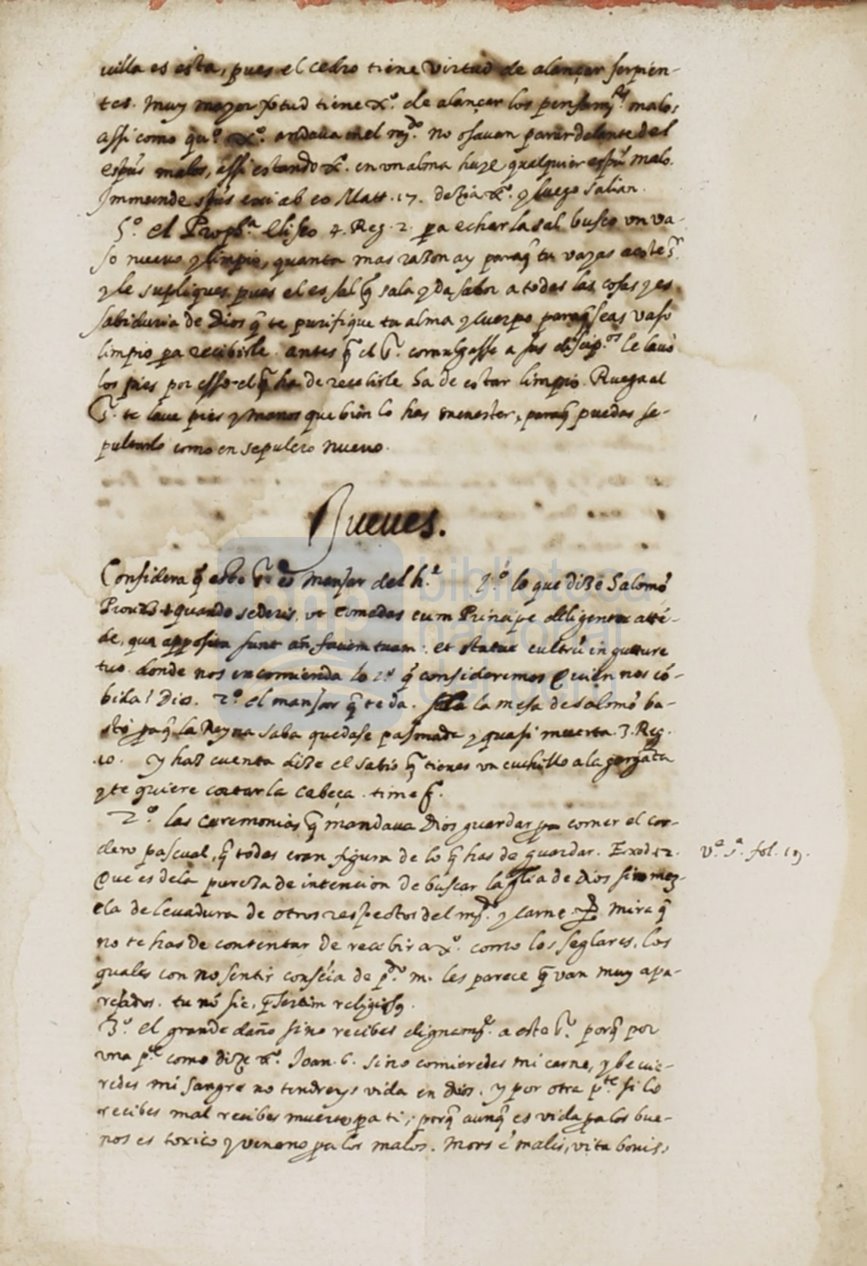 uilla es esta, pues el cedro tiene virtud de alançar serpien-
tes. Muy mayor xtud tiene xº. de alançar los pensamᵗᵒˢ malos
assi como quº xº. andaua en el mᵈᵒ. no osauan parar delante del
espūs malos, assi estando xº. en un alma huye qualquier espū malo.
Immunde spūs exi ab eo Matt. 17. dezia xº. y luego salian.
5º. el Prophᵃ. Eliseo 4. Reg. 2. pa echar la sal busco un va-
so nuevo y limpio, quanta mas razon ay paraq̃ tu vayas a este Sʳ.
y le supliques pues el es sal q̃ sala y da sabor a todas las cosas y es
sabiduria de Dios q̃ te purifique tu alma y cuerpo paraq̃ seas vaso
limpio pa recibirle. antes q̃ el Sʳ. comulgasse a sus discipᵒˢ le lauò
los pies por esso el q̃ ha de recebirle ha de estar limpio. Ruega al
Sʳ. te laue pies y manos que bien lo has menester, paraq̃ puedas se-
pultarlo como en sepulcro nuevo.
Jueues.
Considera q̃ este Sʳ. es manjar del hᵉ. 1º. lo que dize Salomõ
Prouerb. quando sederis, ut comedas cum Principe diligenter attẽ-
de, quæ apposita sunt añ faciem tuam. et statue cultrũ in gutture
tuo. donde nos encomienda lo 1º. q̃ consideremos quien nos cõ-
bida! Dios. 2º. el manjar q̃ te da. la mesa de Salomõ ba-
stò paq̃ la Reyna Saba quedase pasmada y quasi muerta. 3. Reg.
10. y haz cuenta dize el sabio q̃ tienes un cuchillo a la garganta
y te quiere cortar la cabeça. time
2º. las ceremonias q̃ mandaua Dios guardar pa comer el cor-
dero pascual, q̃ todas eran figura de lo q̃ has de guardar. Exod. 12.
Que es dela pureza de intencion de buscar la glia de Dios sin mez-
cla de leuadura de otros respectos del mᵈᵒ. y carne. mira q̃
no te has de contentar de recebir a xº. como los seglares, los
quales con no sentir consc̃ia de pᵈᵒ. m. les parece q̃ van muy apa-
rejados. tu nõ sic, p̃sertim religiosᵒ
3º. el grande daño si no recibes dignamᵗᵉ. a este Sʳ. porq̃ por
una pᵗᵉ como dize xº. Joan. 6. si no comieredes mi carne, y beuie-
redes mi sangre no tendreys vida en Dios. y por otra pᵗᵉ. si lo
recibes mal recibes muerte pa ti; porq̃ aunq̃ es vida pa los bue-
nos es toxico y veneno pa los malos. Mors ẽ malis, vita bonis,
vᵉ. sᵃ. fol. 19.
biblioteca
nacional
de españa